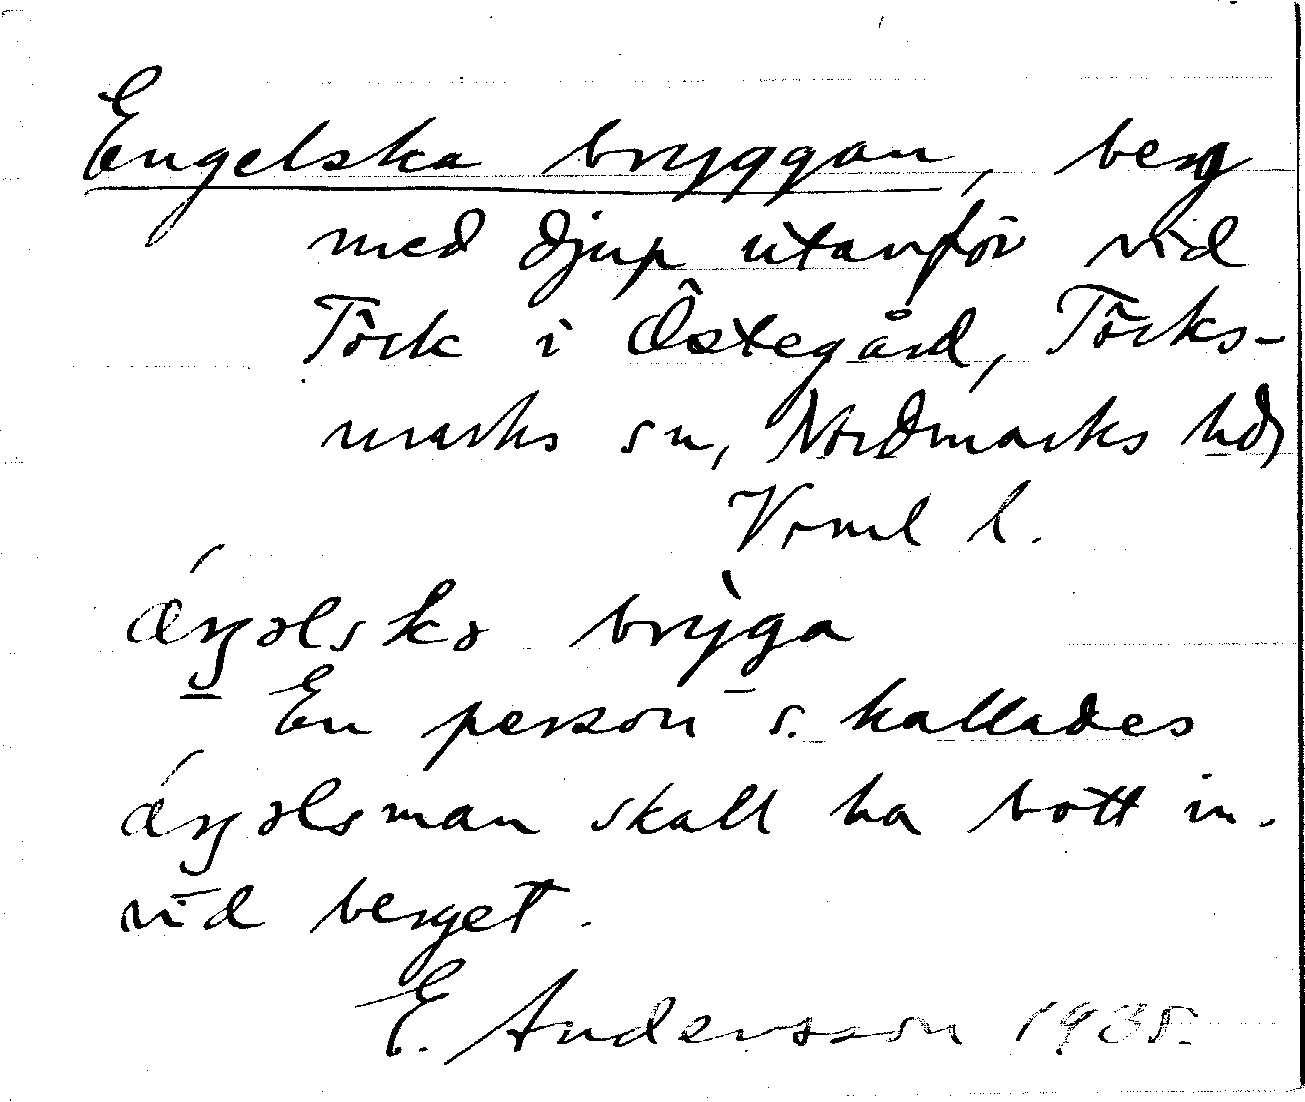 Engelska bryggan, berg
med djup utanför vid
Töck i Östegård, Töcks-
marks sn, Nordmarks hd,
Vrml l.
ǽŋəlskə brỳga
En person s. kallades
ǽŋəlsman skall ha bott in-
vid berget.
E. Andersson 1935.